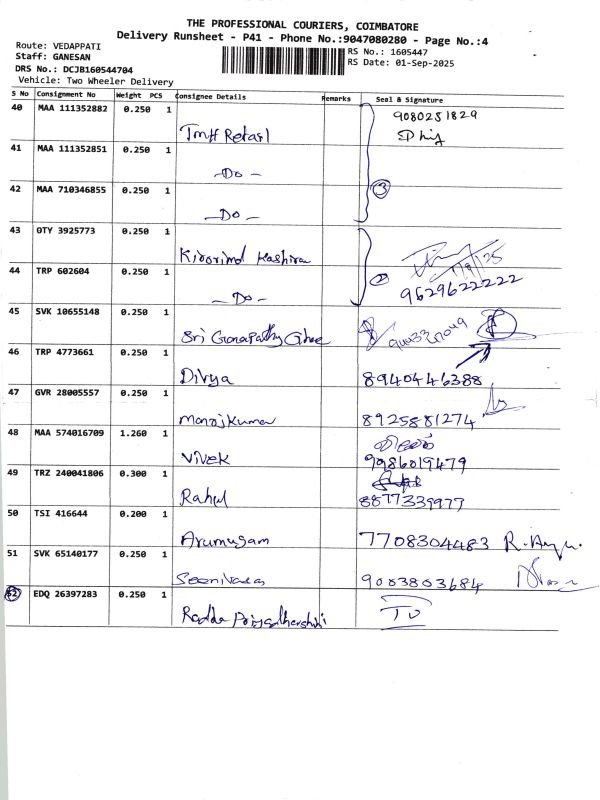 THE PROFESSIONAL COURIERS, COIMBATORE
Delivery Runsheet - P41 - Phone No.:9047080280 - Page No.:4
Route: VEDAPPATI
Staff: GANESAN
DRS No.: DCJB160544704
Vehicle: Two Wheeler Delivery
RS No.: 1605447
RS Date: 01-Sep-2025
S No Consignment No Weight PCS Consignee Details Remarks Seal & Signature
40 MAA 111352882 0.250 1 9080251829
Retail
41 MAA 111352851 0.250 1
-Do-
42 MAA 710346855 0.250 1 3
-Do-
43 OTY 3925773 0.250 1
1/9/25
44 TRP 602604 0.250 1 2
-Do- 9629622222
45 SVK 10655148 0.250 1
Sri Ganapathy Ghee
46 TRP 4773661 0.250 1
Divya 8940446388
47 GVR 28005557 0.250 1
Manojkumar 8925881274
48 MAA 574016709 1.260 1
Vivek 9986019479
49 TRZ 240041806 0.300 1
Rahul 8877339977
50 TSI 416644 0.200 1
Arumugam 7708304483
51 SVK 65140177 0.250 1
Seenivasas 9003803684
52 EDQ 26397283 0.250 1
Radda Priyadharshini